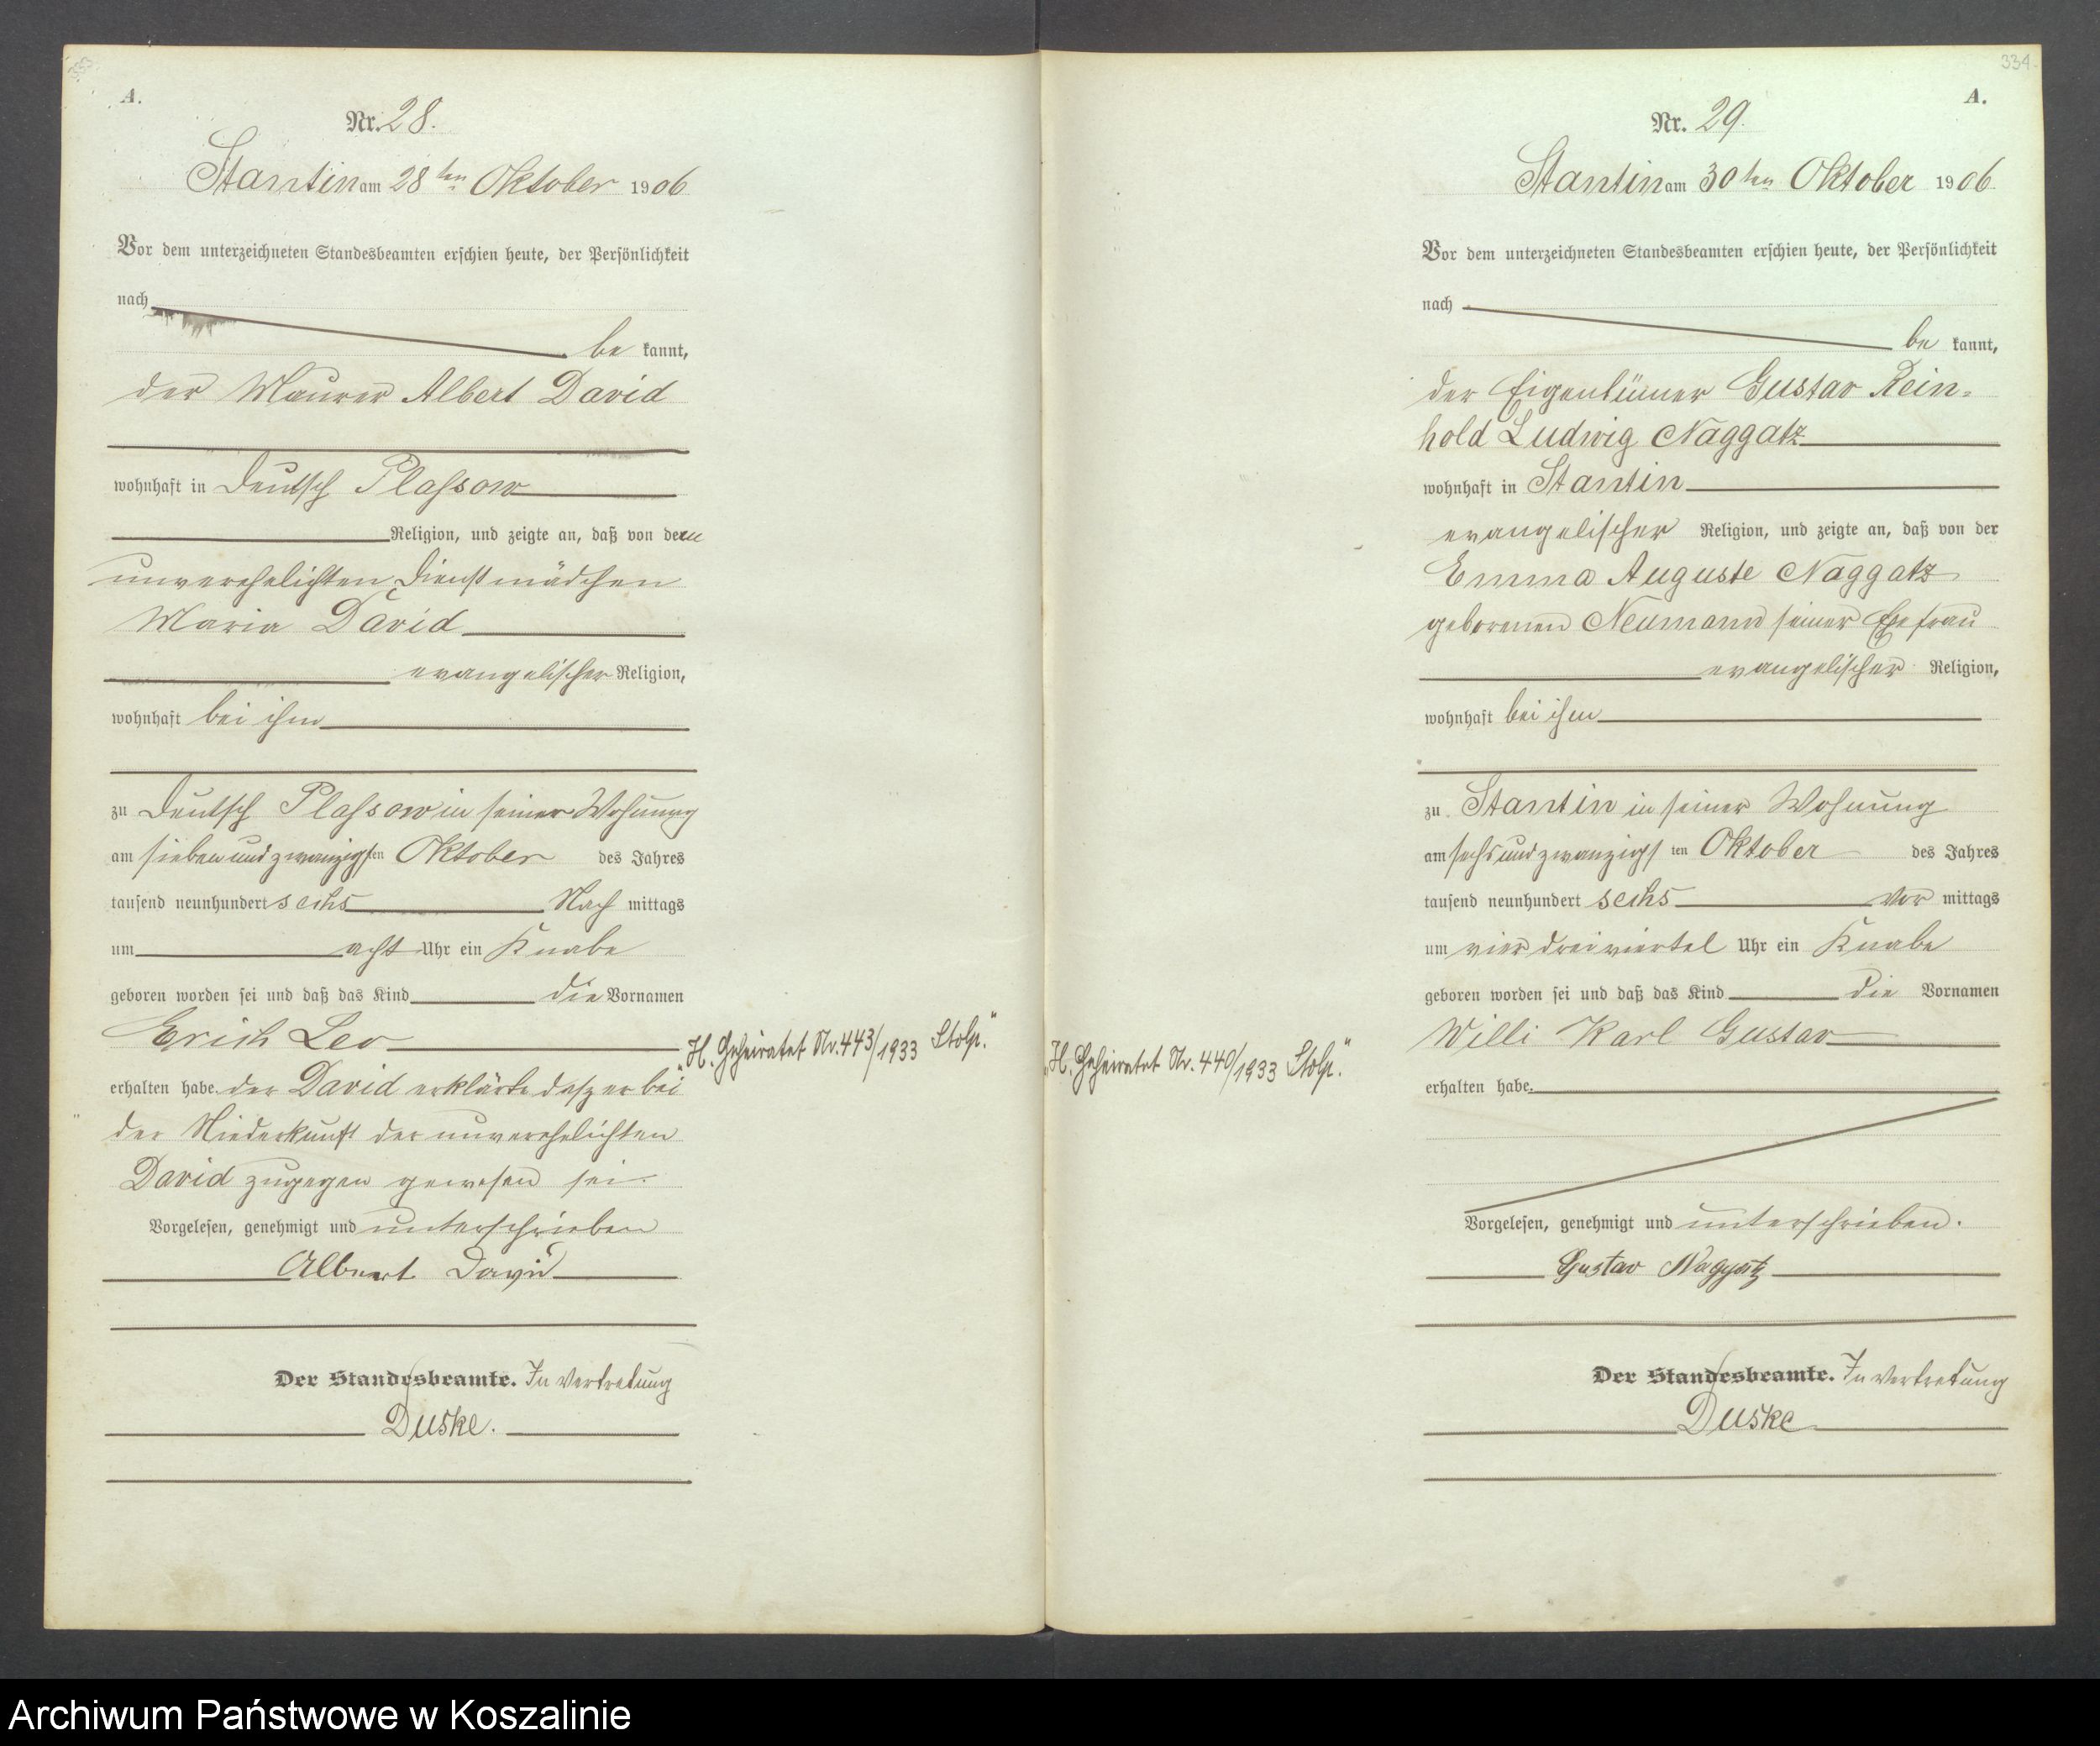 333.
A.
Nr. 28.
Stantin am 28 ten Oktober 1906
Vor dem unterzeichneten Standesbeamten erschien heute, der Persönlichkeit
nach
be kannt,
der Maurer Albert David
wohnhaft in Deutsch Plassow
Religion, und zeigte an, daß von dem
unverehelichten Dienstmädchen
Maria David
evangelischer Religion,
wohnhaft bei ihm
zu Deutsch Plassow in seiner Wohnung
am siebenundzwanzigsten Oktober des Jahres
tausend neunhundert sechs Nach mittags
um acht Uhr ein Knabe
geboren worden sei und daß das Kind die Vornamen
Erich Leo
"H. Geheiratet Nr. 443/1933 Stolp."
erhalten habe. der David erklärte dasz er bei
der Niederkunft der unverehelichten
David zugegen gewesen sei.
Vorgelesen, genehmigt und unterschrieben
Albert David
Der Standesbeamte. In Vertretung
Duske.
334.
A.
Nr. 29.
Stantin am 30 ten Oktober 1906.
Vor dem unterzeichneten Standesbeamten erschien heute, der Persönlichkeit
nach
be kannt,
der Eigentümer Gustav Rein-
hold Ludwig Naggatz
wohnhaft in Stantin
evangelischer Religion, und zeigte an, daß von der
Emma Auguste Naggatz
geborenen Neumann seiner Ehefrau
evangelischer Religion,
wohnhaft bei ihm
zu Stantin in seiner Wohnung
am sechsundzwanzigsten Oktober des Jahres
tausend neunhundert sechs Vor mittags
um vier dreiviertel Uhr ein Knabe
geboren worden sei und daß das Kind die Vornamen
Willi Karl Gustav
"H. Geheiratet Nr. 440/1933 Stolp."
erhalten habe.
Vorgelesen, genehmigt und unterschrieben.
Gustav Naggatz
Der Standesbeamte. In Vertretung
Duske
Archiwum Państwowe w Koszalinie